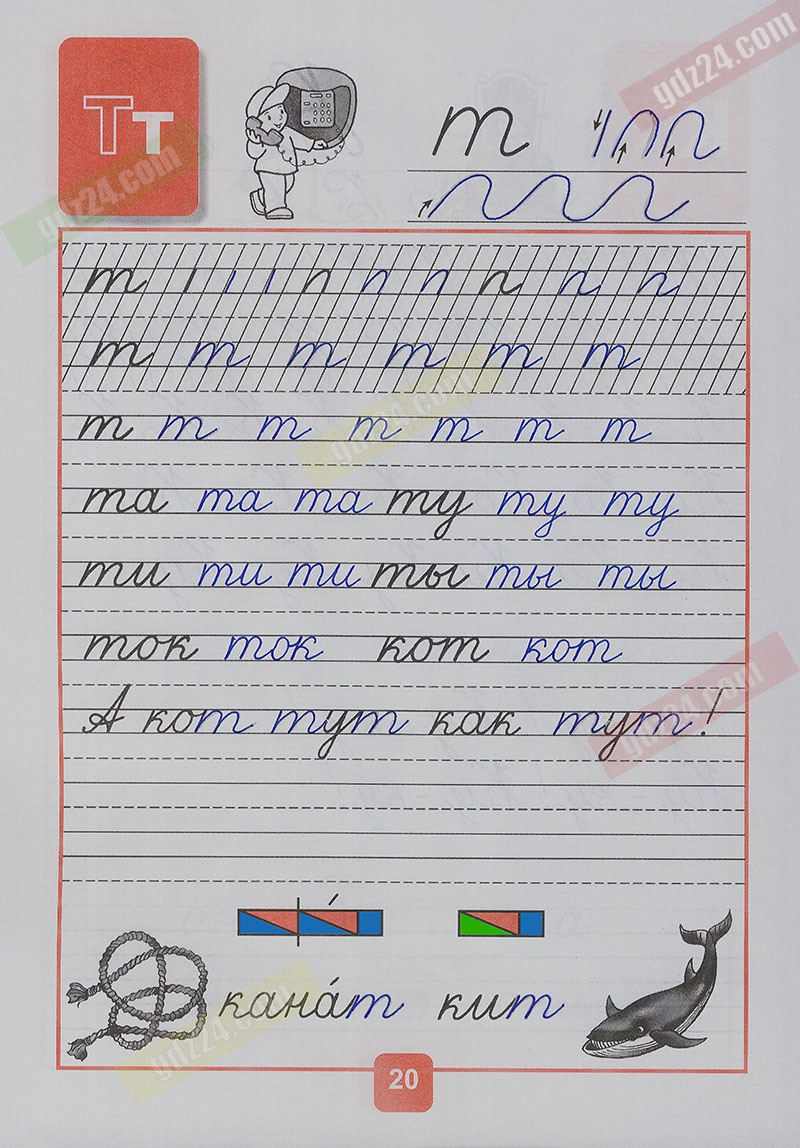 Тт
т
gdz24.com
gdz24.com
т
т т т т т т
gdz24.com
т т т т т т т
та та та ту ту ту
ти ти ти ты ты ты
ток ток кот кот
gdz24.com
А кот тут как тут!
кана́т кит
gdz24.com
20